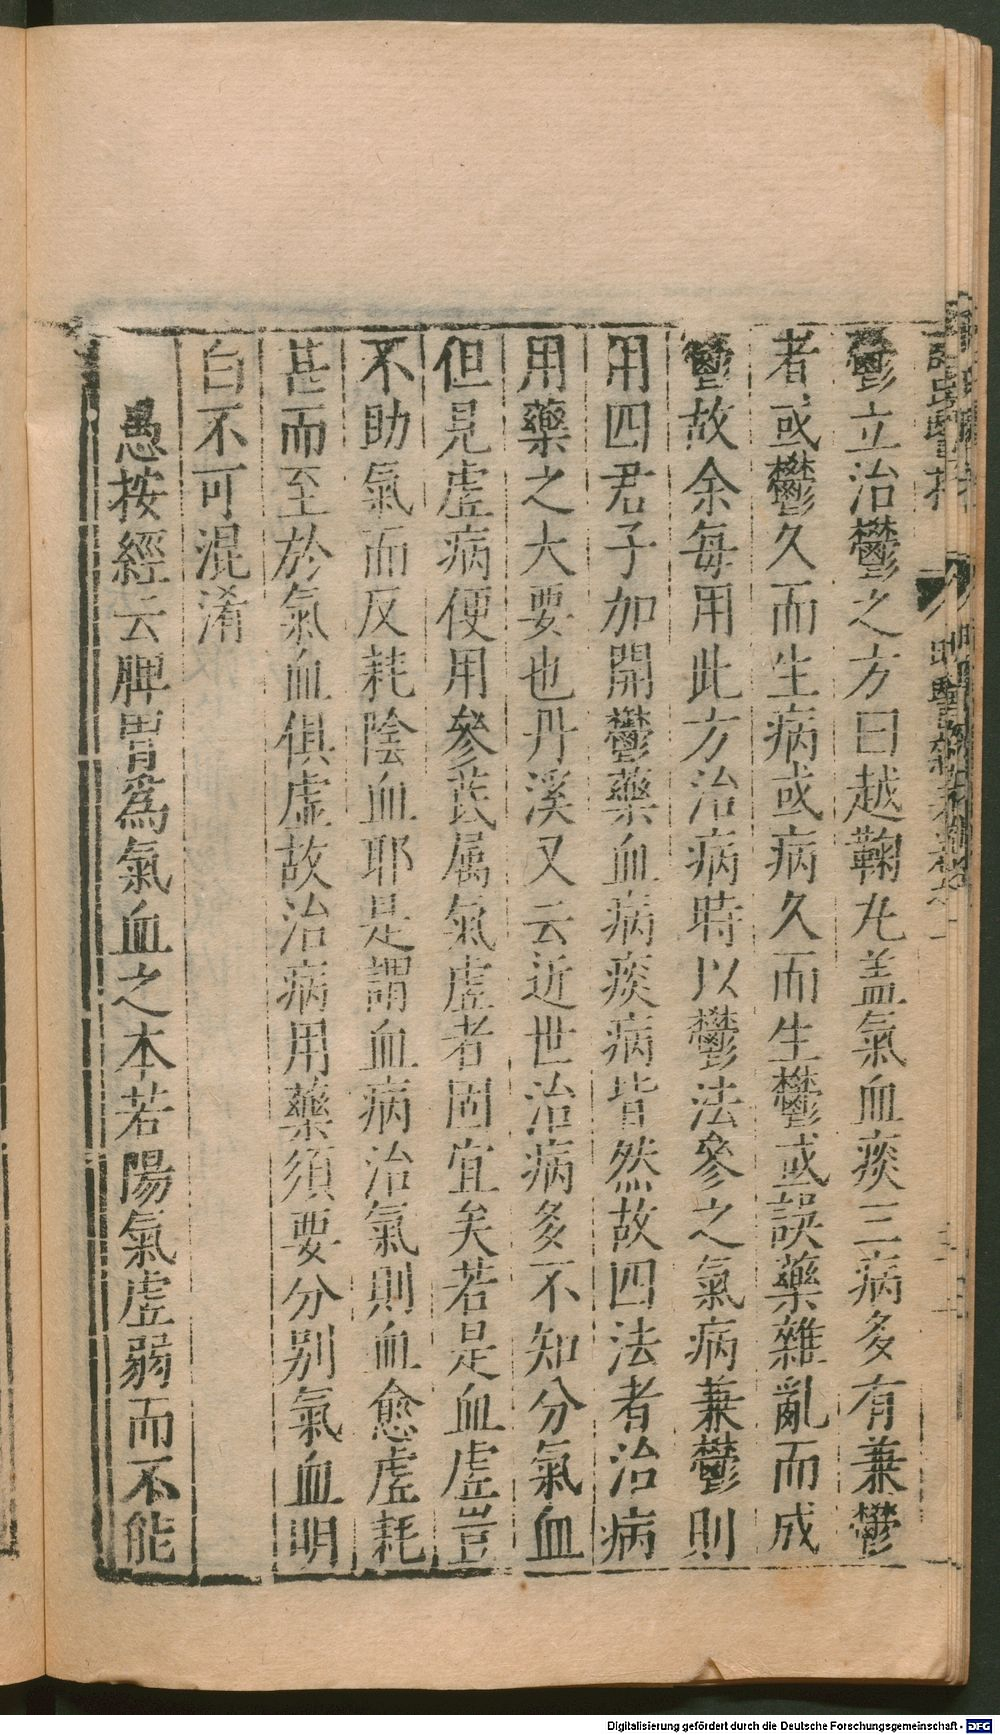 鬱立治鬱之方曰越鞠丸盖氣血痰三病多有兼鬱
者或鬱久而生病或病久而生鬱或誤藥雜亂而成
鬱故余每用此方治病時以鬱法參之氣病兼鬱則
用四君子加開鬱藥血病痰病皆然故四法者治病
用藥之大要也丹溪又云近世治病多不知分氣血
但見虛病便用參茋属氣虛者固宜矣若是血虛豈
不助氣而反耗陰血耶是謂血病治氣則血愈虛耗
甚而至於氣血俱虛故治病用藥須要分别氣血明
白不可混淆
愚按經云脾胃爲氣血之本若陽氣虛弱而不能
Digitalisierung gefördert durch die Deutsche Forschungsgemeinschaft - DFG